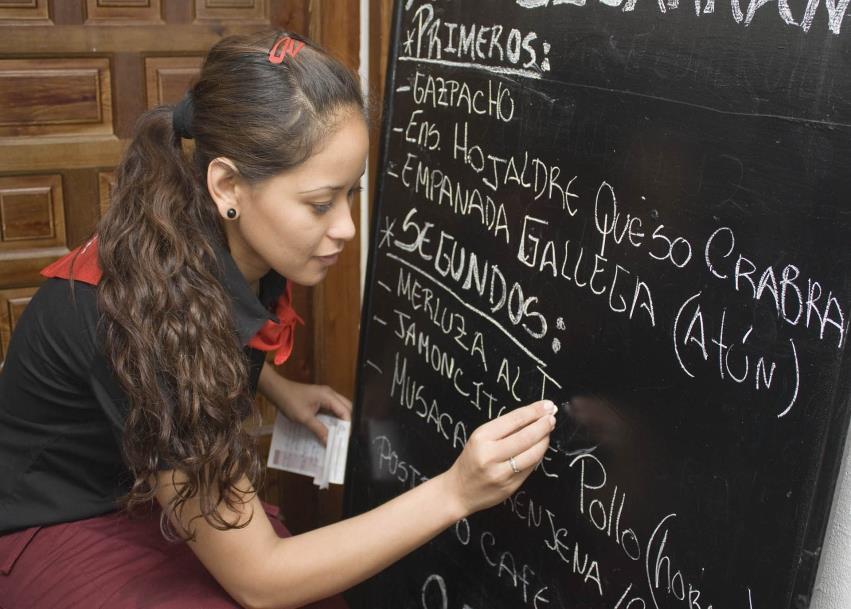 *PRIMEROS:
- GAZPACHO
- ENS. HOJALDRE QUESO CRABRA
- EMPANADA GALLEGA (Atún)
*SEGUNDOS:
- MERLUZA AL T
- JAMONCIT DE Pollo (hor
- MUSACA RENJENA
POST O CAFE